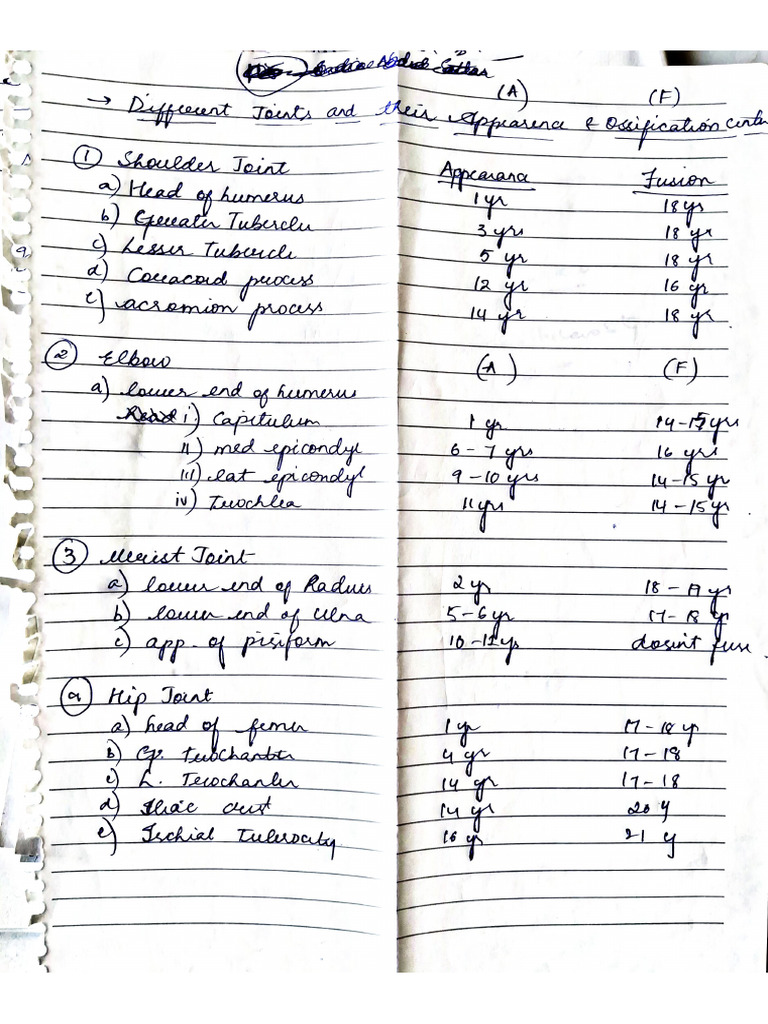 (A) (F)
→ Different Joints and their Appearence & Ossification Cent
① Shoulder Joint Appearana Fusion
a) Head of humerus 1 yr 18 yrs
b) Greater Tubercle 3 yrs 18 yr
c) Lesser Tubercle 5 yr 18 yr
d) Coracoid process 12 yr 16 yr
e) acromion process 14 yr 18 yr
② Elbow (A) (F)
a) lower end of humerus
i) Capitulum 1 yr 14-15 yrs
ii) med epicondyl 6-7 yrs 16 yrs
iii) lat epicondyl 9-10 yrs 14-15 yr
iv) Trochlea 11 yrs 14-15 yr
③ Wrist Joint
a) lower end of Radius 2 yr 18-19 yrs
b) lower end of Ulna 5-6 yr 17-18 y
c) app. of pisiform 10-12 ys dosint fuse
④ Hip Joint
a) head of femur 1 yr 17-18 yr
b) Gr. Trochanter 4 yr 17-18
c) L. Trochanter 14 yr 17-18
d) Iliac crest 14 yr 20 y
e) Ischial Tuberocity 16 yr 21 y